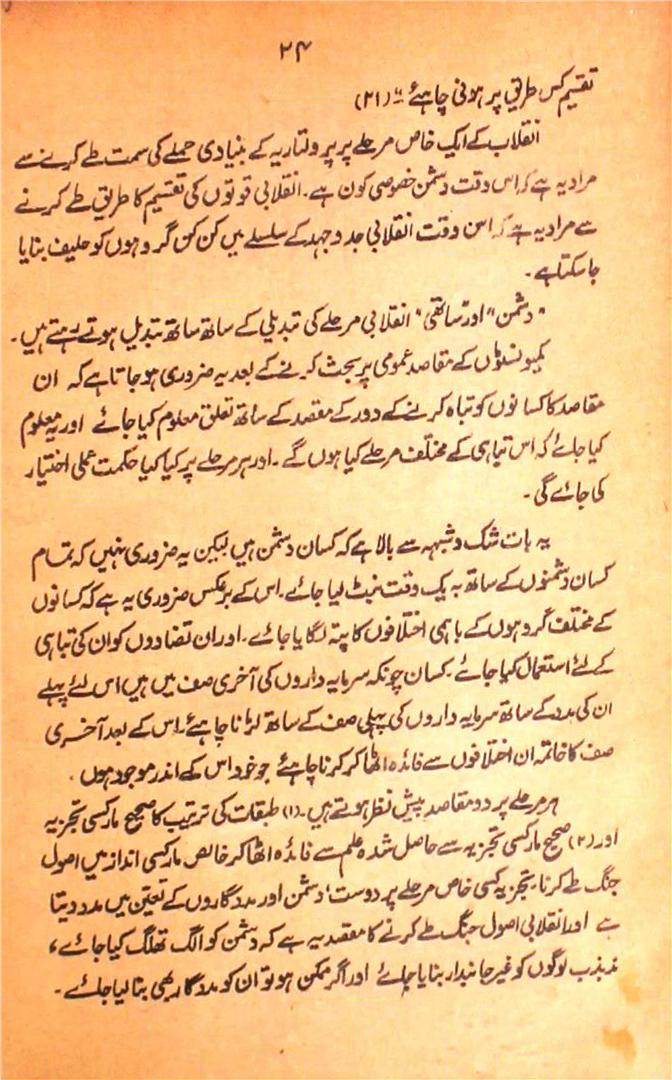 ۲۴
تقسیم کس طریق پر ہونی چاہئے"۔ (۲۱)
انقلاب کے ایک خاص مرحلے پر پرولتاریہ کے بنیادی حملے کی سمت طے کرنے سے
مراد یہ ہے کہ اس وقت دشمن خصوصی کون ہے۔ انقلابی قوتوں کی تقسیم کا طریق طے کرنے
سے مراد یہ ہے کہ اس وقت انقلابی جدوجہد کے سلسلے میں کن کن گروہوں کو حلیف بنایا
جا سکتا ہے۔
"دشمن" اور "ساتھی" انقلابی مرحلے کی تبدیلی کے ساتھ ساتھ تبدیل ہوتے رہتے ہیں۔
کمیونسٹوں کے مقاصد عمومی پر بحث کرنے کے بعد یہ ضروری ہو جاتا ہے کہ ان
مقاصد کا کسانوں کو تباہ کرنے کے دور کے مقصد کے ساتھ تعلق معلوم کیا جائے اور یہ معلوم
کیا جائے کہ اس تباہی کے مختلف مرحلے کیا ہوں گے۔ اور ہر مرحلے پر کیا کیا حکمت عملی اختیار
کی جائے گی۔
یہ بات شک و شبہہ سے بالا ہے کہ کسان دشمن ہیں لیکن یہ ضروری نہیں کہ تمام
کسان دشمنوں کے ساتھ بہ یک وقت نبٹ لیا جائے۔ اس کے برعکس ضروری یہ ہے کہ کسانوں
کے مختلف گروہوں کے باہمی اختلافوں کا پتہ لگایا جائے۔ اور ان تضادوں کو ان کی تباہی
کے لئے استعمال کیا جائے۔ کسان چونکہ سرمایہ داروں کی آخری صف میں ہیں اس لئے پہلے
ان کی مدد کے ساتھ سرمایہ داروں کی پہلی صف کے ساتھ لڑنا چاہئے۔ اس کے بعد آخری
صف کا خاتمہ ان اختلافوں سے فائدہ اٹھا کر کرنا چاہئے جو خود اس کے اندر موجود ہوں۔
ہر مرحلے پر دو مقاصد پیش نظر ہوتے ہیں۔ (۱) طبقات کی ترتیب کا صحیح مارکسی تجزیہ
اور (۲) صحیح مارکسی تجزیہ سے حاصل شدہ علم سے فائدہ اٹھا کر خالص مارکسی انداز میں اصول
جنگ طے کرنا۔ تجزیہ کسی خاص مرحلے پر دوست، دشمن اور مددگاروں کے تعین میں مدد دیتا
ہے اور انقلابی اصول جنگ طے کرنے کا مقصد یہ ہے کہ دشمن کو الگ تھلگ کیا جائے،
مذبذب لوگوں کو غیر جانبدار بنایا جائے اور اگر ممکن ہو تو ان کو مددگار بھی بنا لیا جائے۔